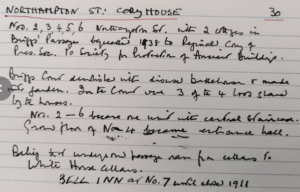 NORTHAMPTON ST: CORY HOUSE 30
Nos. 2, 3, 4, 5, 6 Northampton St. with 2 cottages in
Briggs' Passage bequeathed 1938 to Regional Com. of
Soc. for Protection of Ancient Buildings.
Briggs Court demolished with disused bakehouse & made
garden. In the Court were 3 of the 4 loos shared
by the houses.
Nos. 2-6 became one unit with central staircase.
Ground floor of No 4 became entrance hall.
underground passage ran from cellars to
White Horse Cellars.
BELL INN at No. 7 until about 1911